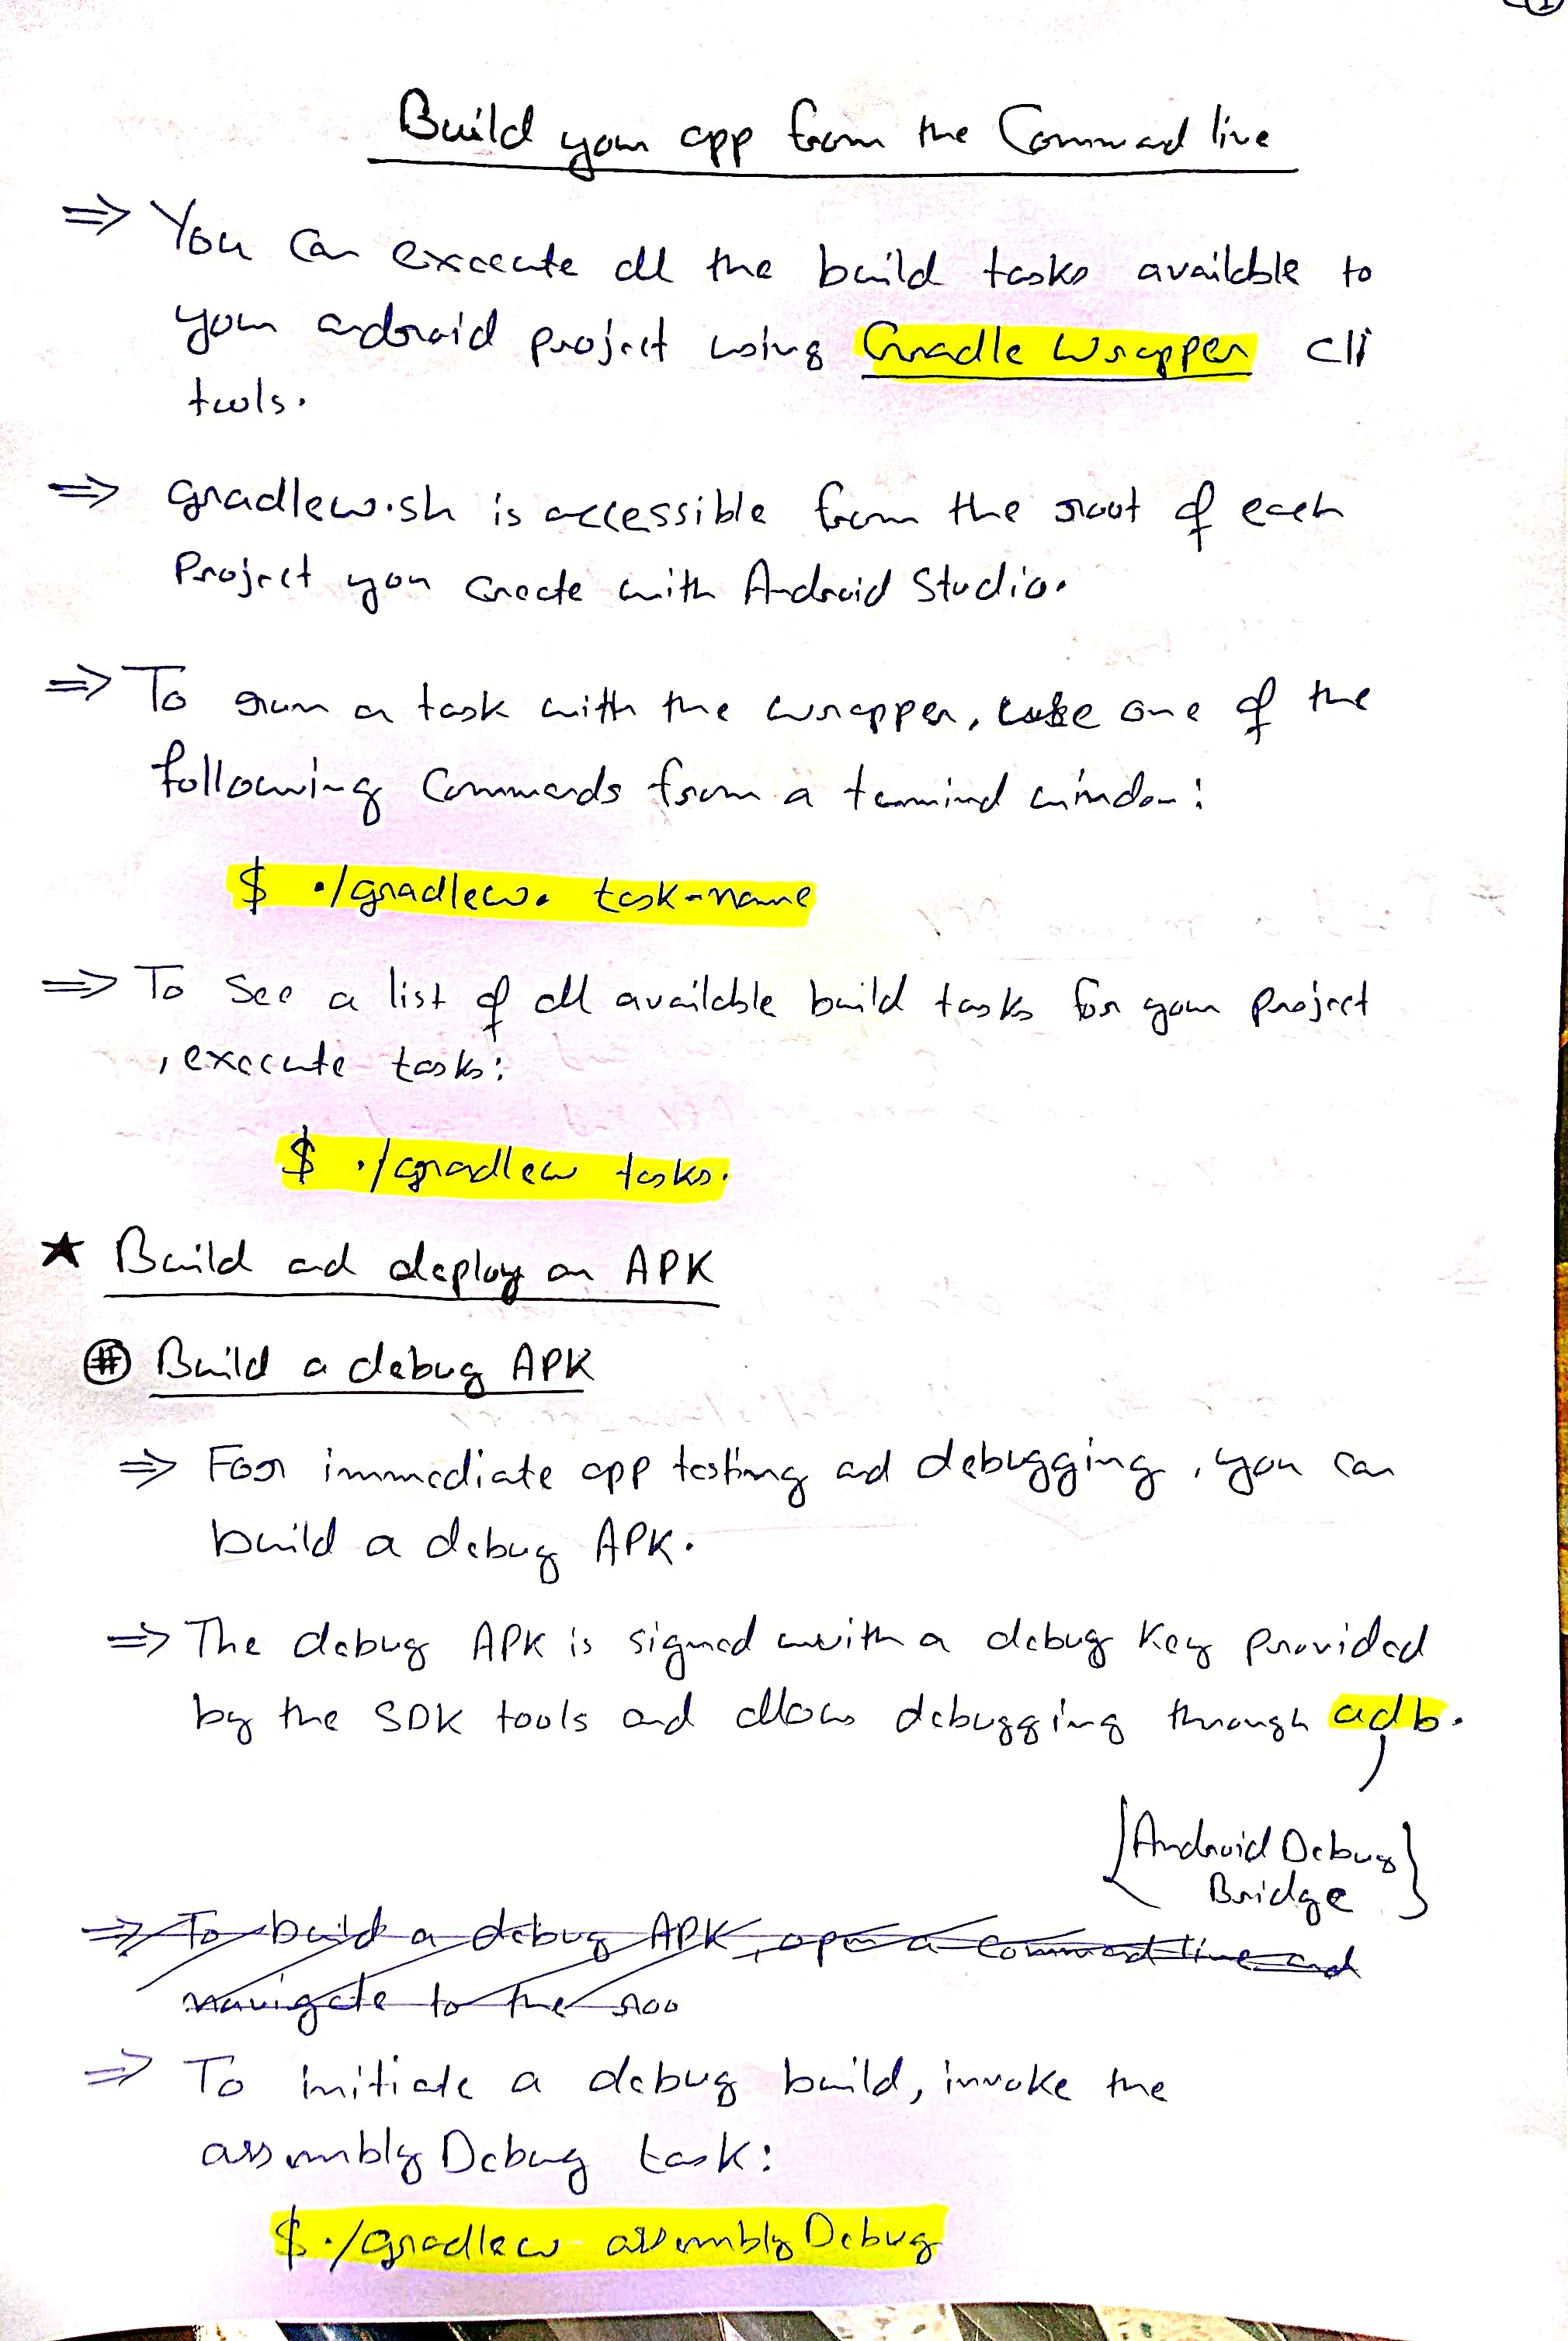 Build your app from the Command line
⇒ You can execute all the build tasks available to
your android project using Gradle Wrapper cli
tools.
⇒ gradlew.sh is accessible from the root of each
Project you create with Android Studio.
⇒ To run a task with the wrapper, use one of the
following Commands from a terminal window:
$ ./gradlew. task-name
⇒ To see a list of all available build tasks for your project
, execute tasks:
$ ./gradlew tasks.
★ Build and deploy an APK
# Build a debug APK
⇒ For immediate app testing and debugging, you can
build a debug APK.
⇒ The debug APK is signed with a debug key provided
by the SDK tools and allows debugging through adb.
{Android Debug
Bridge}
⇒ To build a debug APK, open a command line and
navigate to the roo
⇒ To initiate a debug build, invoke the
assembly Debug task:
$ ./gradlew assembly Debug